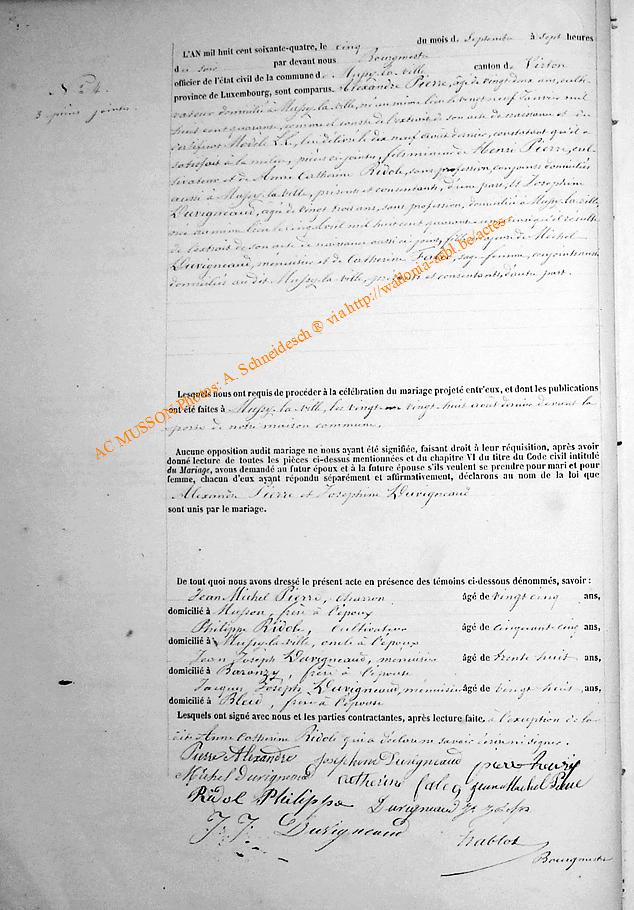 N.° 24.
3 pièces jointes
L'AN mil huit cent soixante-quatre, le cinq du mois de Septembre à sept heures
du soir par devant nous Bourgmestre
officier de l'état civil de la commune de Mussy-la-ville canton de Virton
province de Luxembourg, sont comparus Alexandre Pierre, âgé de vingt deux ans, culti-
vateur domicilié à Mussy-la-ville, né au même lieu le vingt neuf
mil huit cent quarante comme il conste de l'extrait de son acte de naissance et du
certificat Modèle LL, lui délivré le dix neuf août dernier, constatant qu'il a
satisfait à la milice, pièces ci jointes, fils mineur de Henri Pierre, cul-
tivateur et de Anne Catherine Ridole, sans profession, conjoints domiciliés
aussi à Mussy-la-ville, présents et consentants, d'une part. Et Joséphine
Duvigneaud, âgée de vingt trois ans, sans profession, domiciliée à Mussy-la-ville,
née au même lieu le cinq avril mil huit cent quarante un, ainsi qu'il résulte
de l'extrait de son acte de naissance aussi ci joint, fille majeure de Michel
Duvigneaud, menuisier et de Catherine sage-femme, conjoints
domiciliés audit Mussy-la-ville, présents et consentants, d'autre part.
Lesquels nous ont requis de procéder à la célébration du mariage projeté entr'eux, et dont les publications
ont été faites à Mussy-la-ville, les vingt et vingt huit août dernier devant la
porte de notre maison commune.
Aucune opposition audit mariage ne nous ayant été signifiée, faisant droit à leur réquisition, après avoir
donné lecture de toutes les pièces ci-dessus mentionnées et du chapitre VI du titre du Code civil intitulé
du Mariage, avons demandé au futur époux et à la future épouse s'ils veulent se prendre pour mari et pour
femme, chacun d'eux ayant répondu séparément et affirmativement, déclarons au nom de la loi que
Alexandre Pierre et Joséphine Duvigneaud
sont unis par le mariage.
De tout quoi nous avons dressé le présent acte en présence des témoins ci-dessous dénommés, savoir :
Jean Michel Pierre, charron âgé de vingt cinq ans,
domicilié à Musson, frère à l'époux
Philippe Ridole, cultivateur âgé de cinquante cinq ans,
domicilié à Mussy-la-ville, oncle à l'époux
Jean Joseph Duvigneaud, menuisier âgé de trente huit ans,
domicilié à Baranzy, frère à l'épouse
Jacques Joseph Duvigneaud, menuisier âgé de vingt huit ans,
domicilié à Bleid, frère à l'épouse
Lesquels ont signé avec nous et les parties contractantes, après lecture faite, à l'exception de la
dite Anne Catherine Ridole qui a déclaré ne savoir écrire ni signer.
Pierre Alexandre Josephine Duvigneaud pierre henry
Michel Duvigneaud Catherine jean Michel Pierre
Ridol Philippe Duvigneaud
J. J. Duvigneaud
Bourgmestre
AC MUSSON Photos: A. Schneidesch ® via http://wallonia-asbl.be/actes-